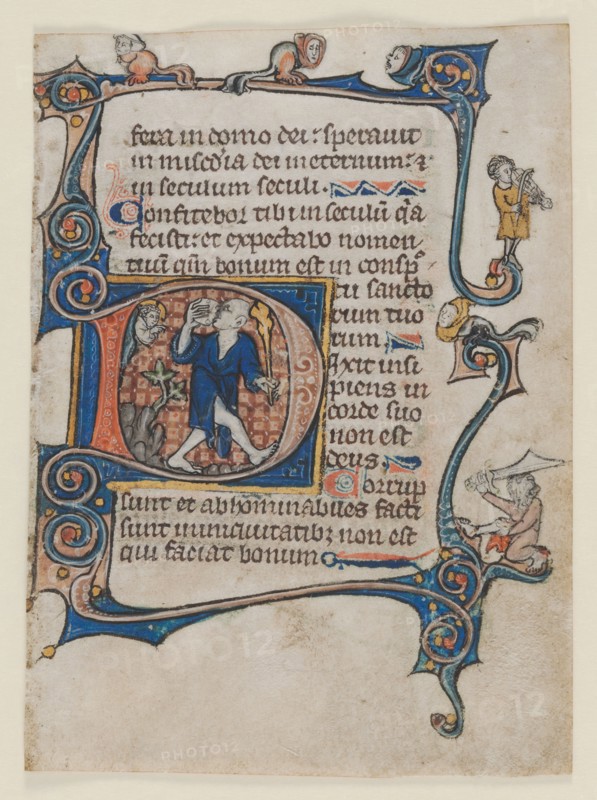 fera in domo dei: speravit
in misc̄dia dei in eternum: ⁊
in seculum seculi.
Confitebor tibi in seculū q̄a
fecisti: et expectabo nomen
tuū qm̄ bonum est in conspᵒ
tu sancto
rum tuo
rum
Dixit insi
piens in
corde suo
non est
deus.
Corrup
sunt et abhominabiles facti
sunt in iniq̄uitatibꝫ non est
qui faciat bonum
PHOTO12